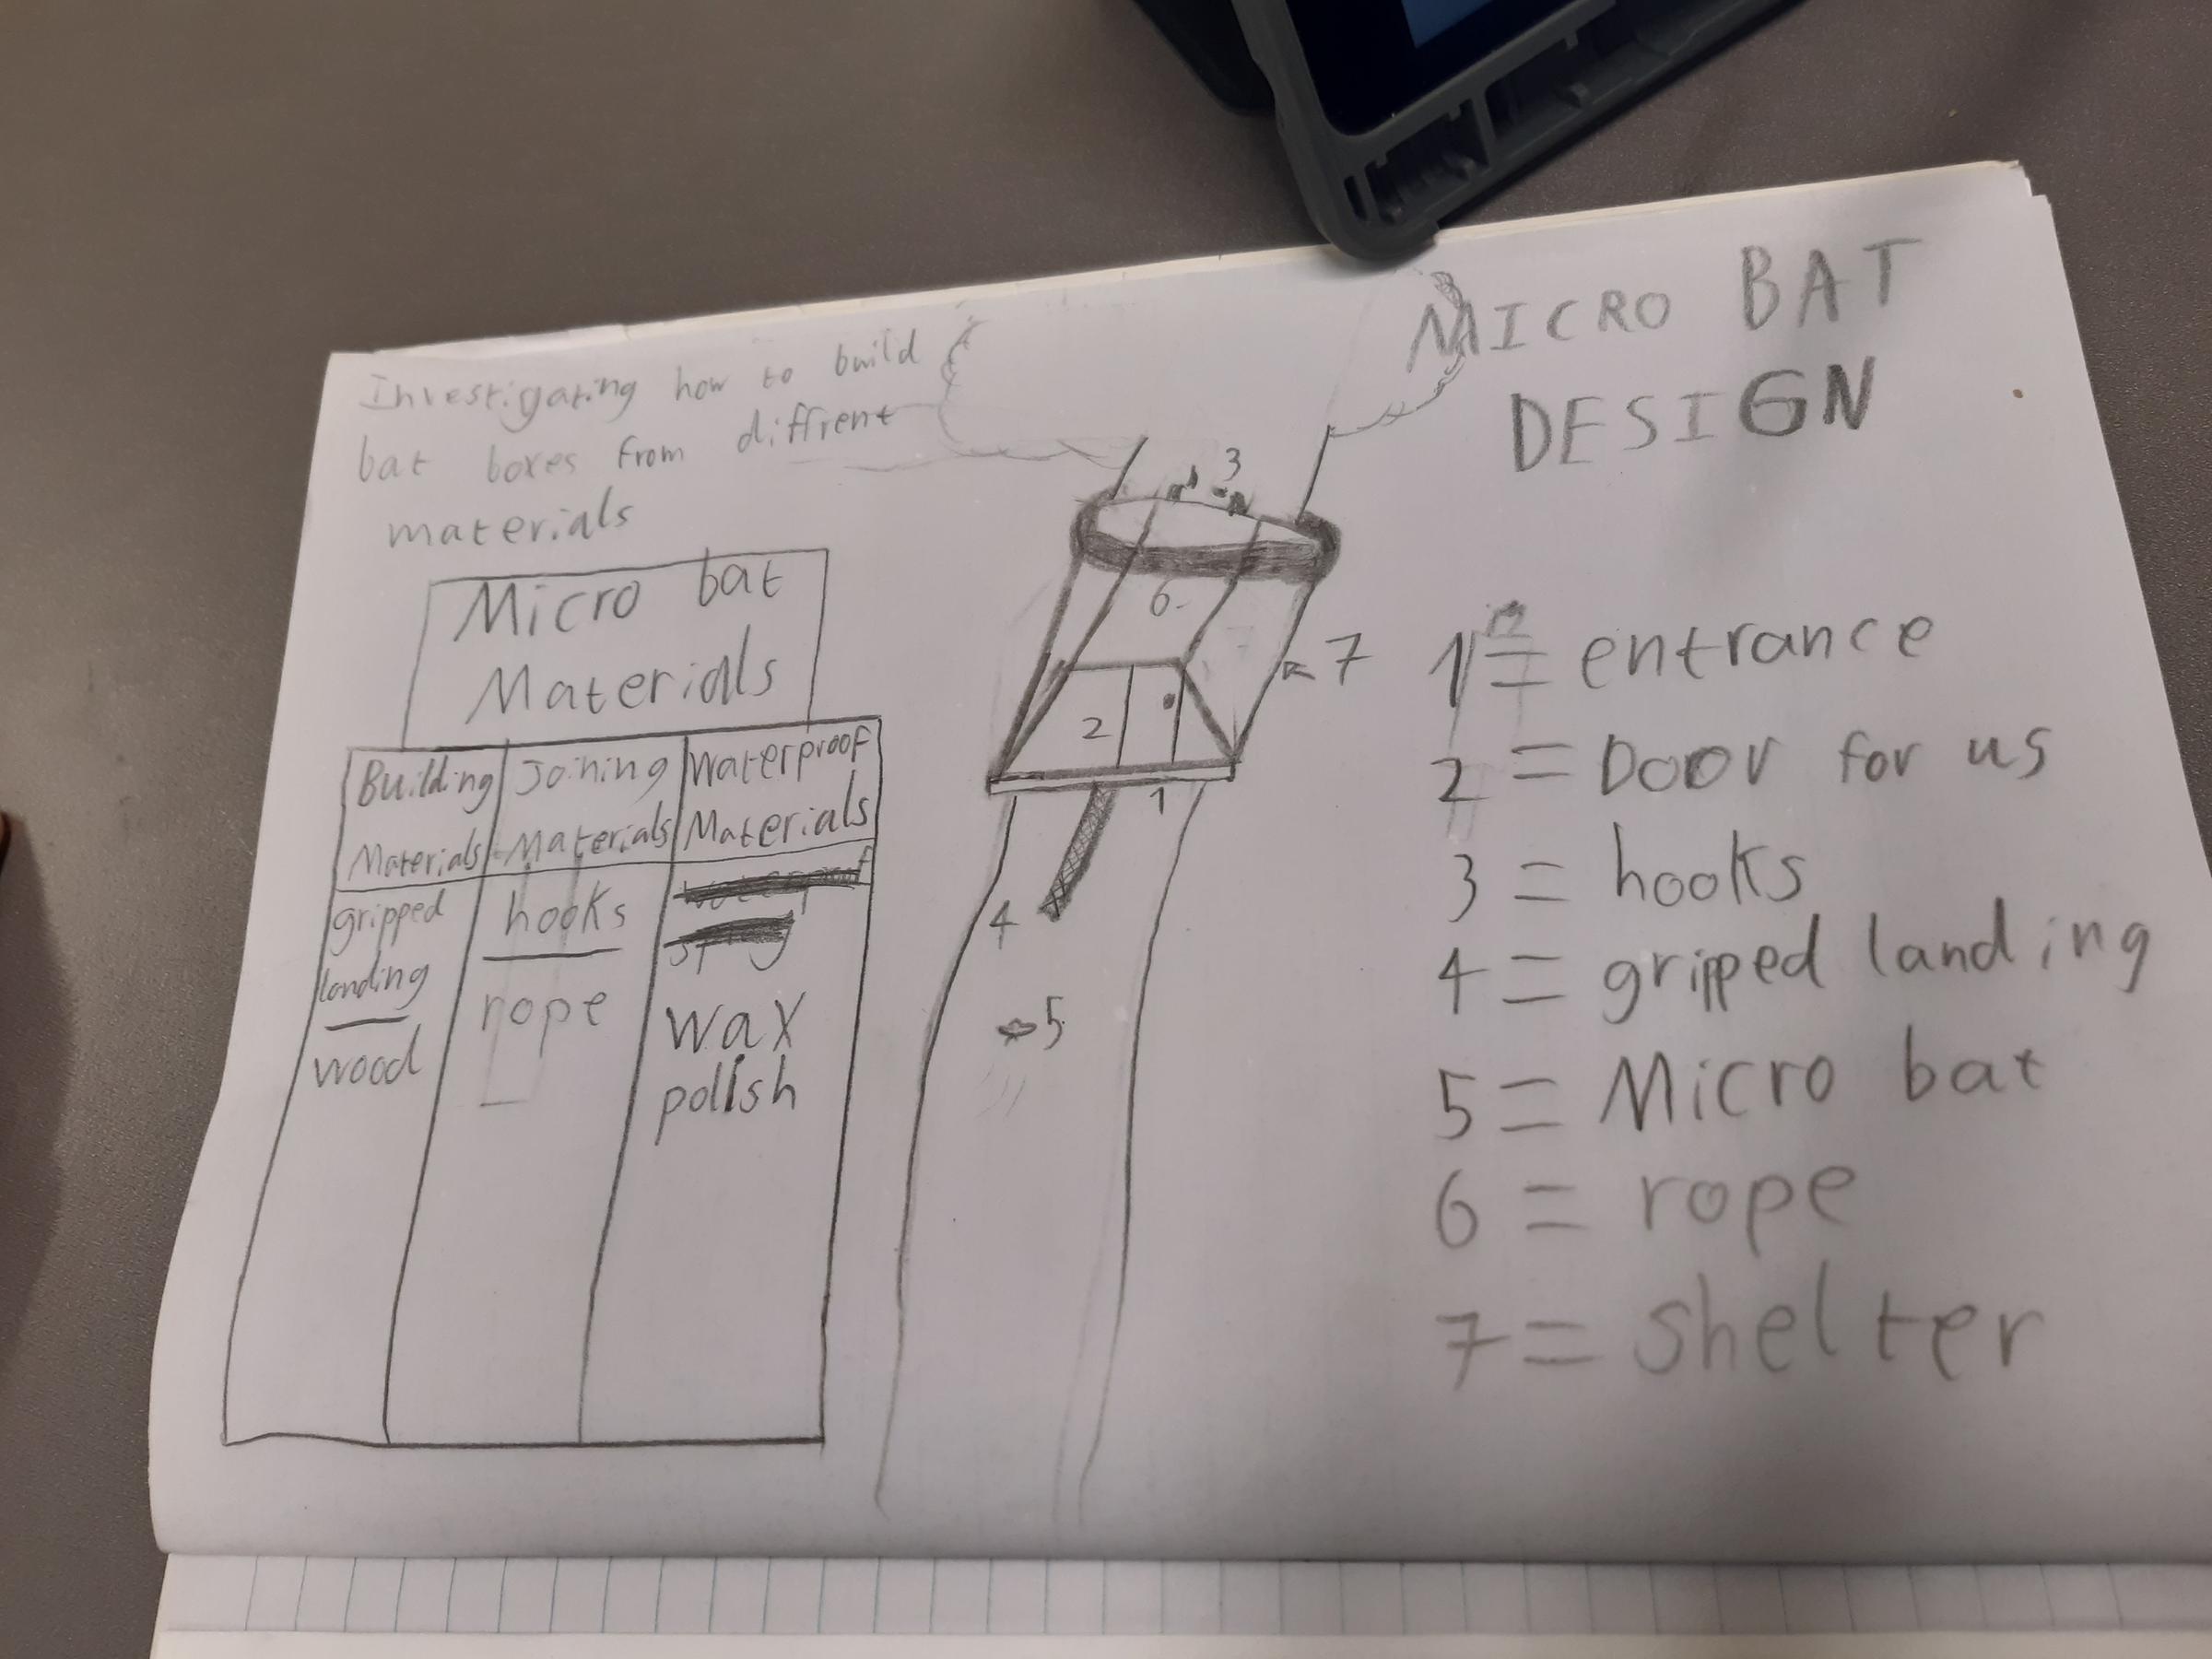 Investigating how to build
bat boxes from diffrent
materials
Micro bat
Materials
Building
Materials
Joining
Materials
Waterproof
Materials
gripped
landing
wood
hooks
rope
wax
polish
MICRO BAT
DESIGN
3
6
7
2
1
4
5
1 = entrance
2 = Door for us
3 = hooks
4 = gripped landing
5 = Micro bat
6 = rope
7 = shelter